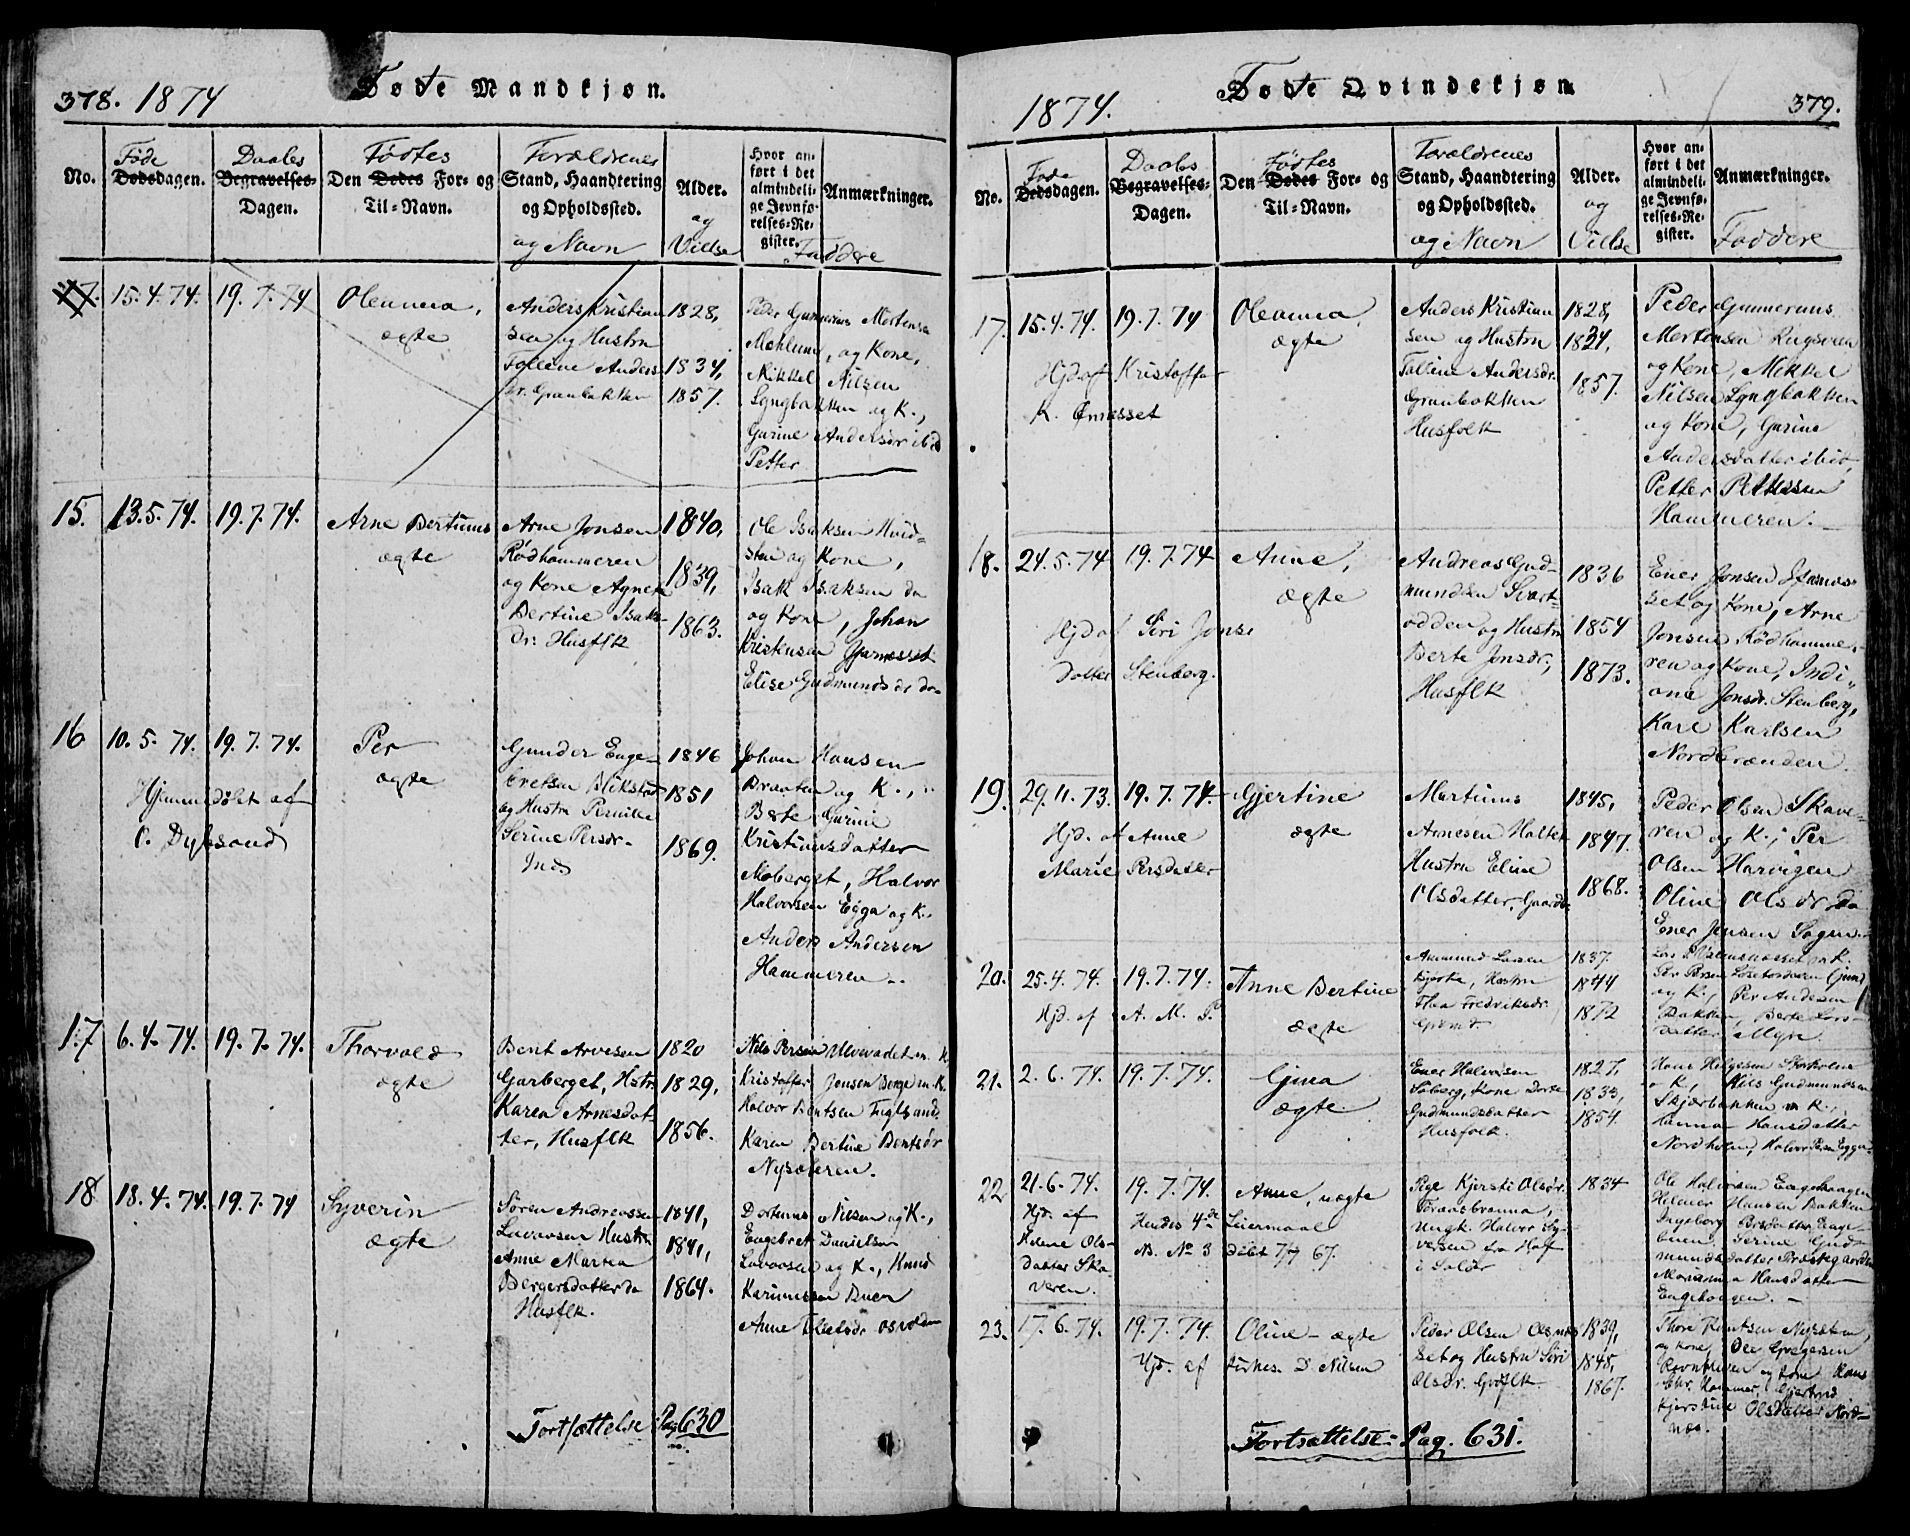 378. 1874
Føᵭte Mandkjøn.
No.
Føde
Dødsdagen.
Daabs
Begravelses-
Dagen.
Fødtes
Den Dødes For- og
Til-Navn.
Forældrenes
Stand, Haandtering
og Opholdssted.
og Navn
Alder.
og
Vielse
Hvor an-
ført i det
almindeli-
ge Jevnfø-
relses-Re-
gister.
Anmærkninger.
Faddere
17. 15.4.74. 19.7.74
Oleanna,
ægte
Anders Kristian
sen og Hustru
Anders
dr. Granbakken
1828,
1834,
1857.
Peder Gunnerius Mortensen
Mohlund, og Kone,
Mikkel Nilsen
Lyngbakken og K.,
Gurine Andersdr ibid
Petter
15. 13.5.74. 19.7.74.
Arne Bertinus
ægte
Arne Jonsen
Rødhammeren
og Kone Agnete
Bertine Isaks-
dr: Husflk
1840,
1839,
1863.
Ole Isaksen Hvid-
sten og Kone,
Isak Isaksen do
og Kone, Johan
Kristiansen
Elise Gudmundsdr do
16 10.5.74. 19.7.74.
Hjemmedøbt af
O. Dyhsand
Per
ægte
Gunder Enge-
bretsen Blikstad
og Hustru Pernille
Serine Persdr-
Ind
1846
1851
1869.
Johan Hansen
Braaten og K.,
Berte Gurine
Kristiansdatter
Moberget, Halvor
Halvorsen Egga og K.
Anders Andersen
Hammeren
17 6.4.74. 19.7.74.
Thorvald
ægte
Bent Arvesen
Garberget, Hstr
Karen Arnesdat-
ter, Husflk
1820
1829,
1856.
Nils Persen Ulvevadet m. K
Kristoffer Jonsen Berge m. K.
Halvor Bentsen Fuglsand
Karen Bertine Bentsdr
Nysæteren.
18 18.4.74. 19.7.74
Syverin
ægte
Søren Andreassen
Lavaasen Hustru
Anne Martea
Bergersdatter do
Husflk.
1841,
1841,
1864.
Nilsen og K.,
Engebret Danielsen
Lavaasen og K., Knud
Karinussen Buen
Anne Osvolden
Fortsættelse Pag 630
1874.
Føᵭte Qvindekjøn
379.
No.
Føde
Dødsdagen.
Daabs
Begravelses-
Dagen.
Fødtes
Den Dødes For- og
Til-Navn.
Forældrenes
Stand, Haandtering
og Opholdssted.
og Navn
Alder.
og
Vielse
Hvor an-
ført i det
almindeli-
ge Jevnfø-
relses-Re-
gister.
Anmærkninger.
Faddere
17. 15.4.74. 19.7.74
Hjd af Kristoffer
K. Ømasset
Oleanna,
ægte
Anders Kristian
sen og Hustru
Andersdr.
Granbakken
Husfolk
1828,
1834,
1857.
Peder Gunnerius
Mortensen
og Kone, Mikkel
Nilsen Lyngbakken
og Kone, Gurine
Andersdatter ibid,
Petter Pettersen
Hammeren.
18. 24.5.74 19.7.74
Hjd af Siri Jons-
datter Stenberg.
Anne,
ægte
Andreas Gud-
mundsen Svart-
odden og Hustru
Berte Jonsdr,
Husflk
1836
1854
1873.
Ener Jonsen
set og Kone, Arne
Jonsen Rødhamme-
ren og Kone, Indi-
ane Jonsdr. Stenberg,
Kare Karlsen
Nordbrænden.
19. 29.11.73. 19.7.74.
Hjd. af Anne
Marie Persdatter
Gjertine
ægte
Martinus
Arnesen Holter
Hustru Eline
Olsdatter, Gaardb
1845,
1847.
1868.
Peder Olsen Skave-
ren og K.; Per
Olsen Harvigen
Oline Olsdr do
Ener Jensen Sagen
20. 25.4.74. 19.7.74.
Hjd. af A. M. P.
Anne Bertine
ægte
Ammund Larsen
Bjerke, Hustru
Thea Fredriksdr.
Grund
1837.
1844
1872
og K., Per Andersen
Bakken, Berte Lars-
datter Myn
21. 2.6.74. 19.7.74.
Gina
ægte
Ener Halvorsen
Soberg, Kone Dorte
Gudmundsdatter
Husfolk.
1827.
1833,
1854.
Hans Helgesen
o K, Nils Gudmundsen
Skjærbakken m K.,
Hanna Hansdatter
Nordholen, Halvor Persen Eggen
22 21.6.74. 19.7.74.
Hjd. af
Helene Ols-
datter Ska-
veren.
Hendes 4de Leiermaal
Ns. No 3 døbt 7/7 67.
Anne, uægte
Pige Kjersti Olsdr.
Foraasbranna,
Ungk. Halvor Sy-
versen fra Hof
i Solør
1834
Ole Halvorsen Engehaugen
Helmer Hansen Bakken
Ingeborg Persdatter Enge-
buen, Serine Gud-
mundsdatter Præstegaarden
Marianna Hansdatter
Engehaugen. –
23. 17.6.74. 19.7.74.
Hjd. af Kirkes. D. Nilsen
Oline – ægte
Peder Olsen
set og Hustru Siri
Olsdr. Grdflk.
1839,
1845,
1867.
Thore Knutsen Nysæten,
og Kone, Ole Gregersen
og Kone Hans
Chr. Hammer, Gjertrud
Kjerstine Olsdatter Nord-
næs.
Fortsættelse: Pag. 631.